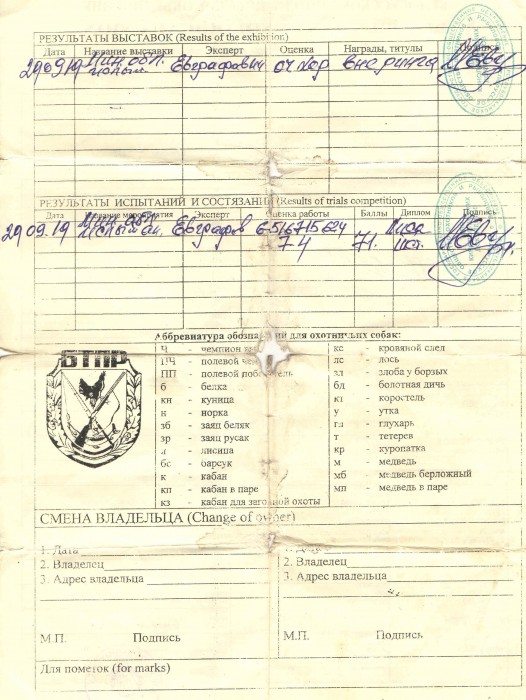 РЕЗУЛЬТАТЫ ВЫСТАВОК (Results of the exhibition)
Дата Название выставки Эксперт Оценка Награды, титулы Подпись
29.09.19 Мин. обл. Евграфович оч хор вне ринга
РЕЗУЛЬТАТЫ ИСПЫТАНИЙ И СОСТЯЗАНИЙ (Results of trials competition)
Дата Название мероприятия Эксперт Оценка работы Баллы Диплом Подпись
29.09.19 Мин. обл. Евграфов 71.
74
Аббревиатура обозначений для охотничьих собак:
БТПР
Ч - чемпион
ПЧ - полевой
ПП - полевой
б - белка
кн - куница
н - норка
зб - заяц беляк
зр - заяц русак
л - лисица
бс - барсук
к - кабан
кп - кабан в паре
кз - кабан для загонной охоты
кс - кровяной след
лс - лось
зл - злоба у борзых
бд - болотная дичь
кт - коростель
у - утка
гл - глухарь
т - тетерев
кр - куропатка
м - медведь
мб - медведь берложный
мп - медведь в паре
СМЕНА ВЛАДЕЛЬЦА (Change of owner)
1. Дата
2. Владелец
3. Адрес владельца
М.П. Подпись
1. Дата
2. Владелец
3. Адрес владельца
М.П. Подпись
Для пометок (for marks)